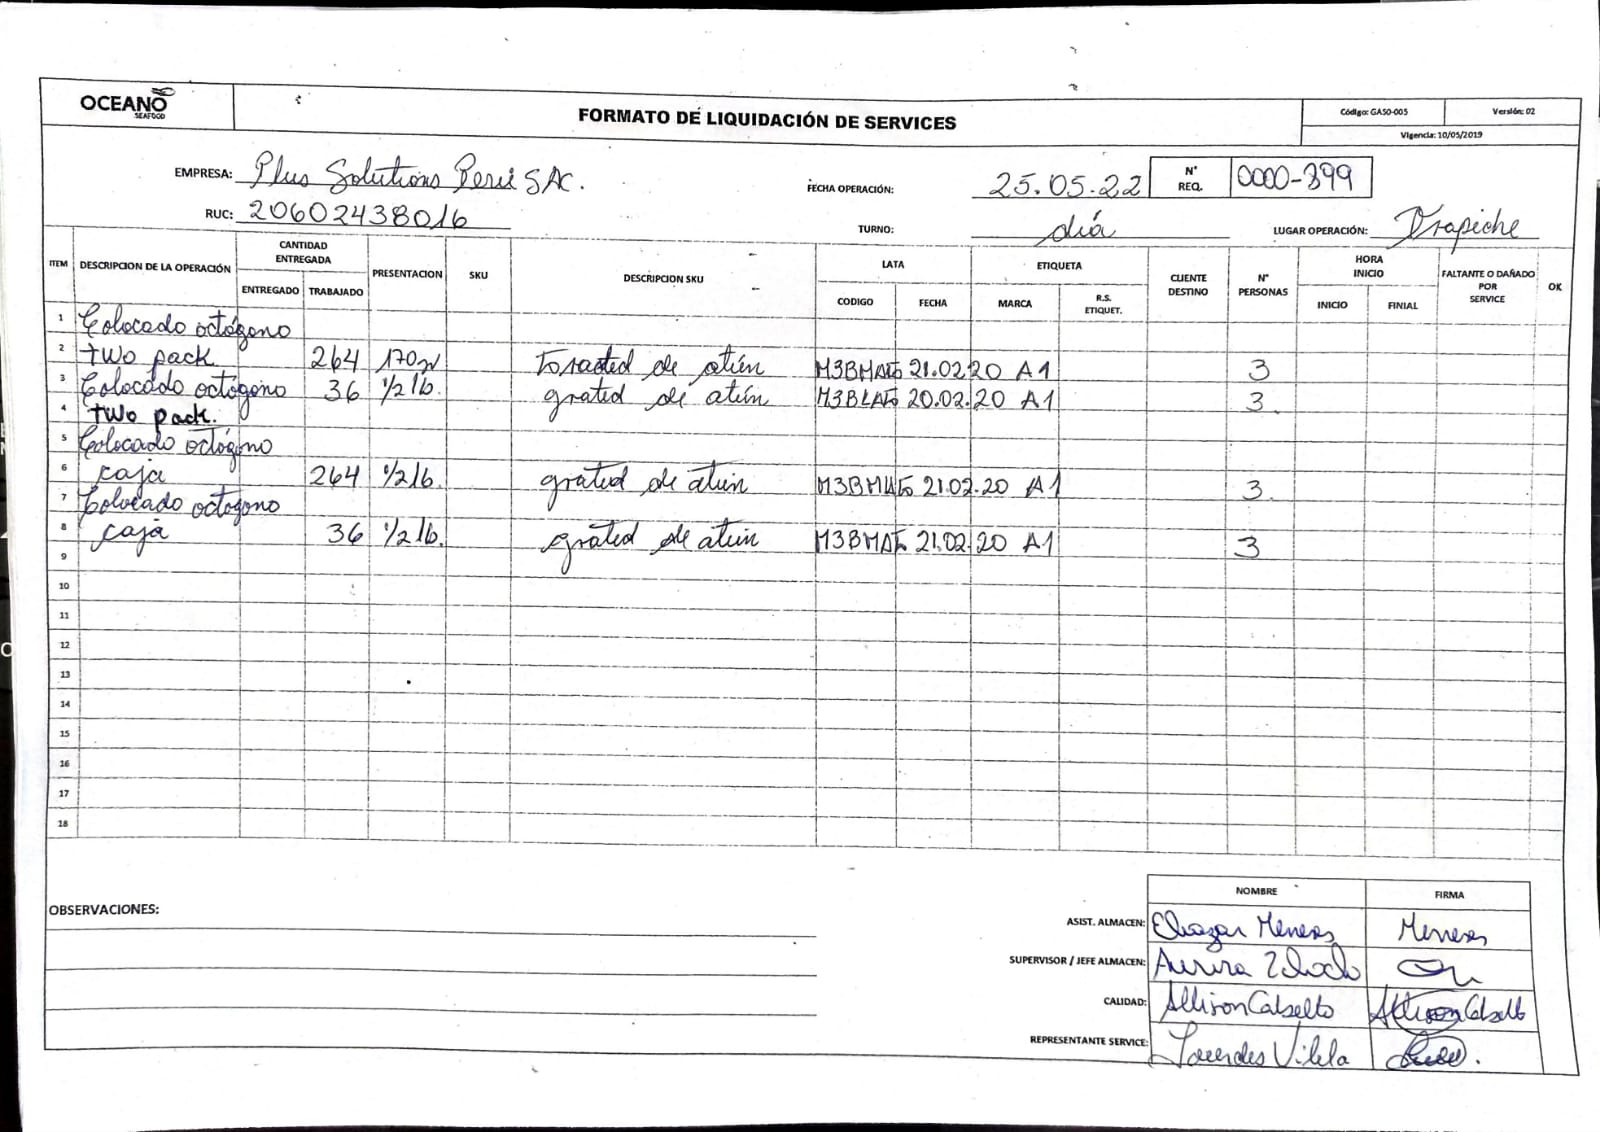 OCEANO
SEAFOOD
FORMATO DE LIQUIDACIÓN DE SERVICES
Código: GASO-005
Versión: 02
Vigencia: 10/05/2019
EMPRESA: Plus Solutions Perú SAC.
FECHA OPERACIÓN: 25.05.22
N° REQ. 0000-399
RUC: 20602438016
TURNO: día
LUGAR OPERACIÓN: Trapiche
ITEM DESCRIPCION DE LA OPERACIÓN CANTIDAD ENTREGADA PRESENTACION SKU DESCRIPCION SKU LATA ETIQUETA CLIENTE DESTINO N° PERSONAS HORA INICIO FALTANTE O DAÑADO POR SERVICE OK
ENTREGADO TRABAJADO CODIGO FECHA MARCA R.S. ETIQUET. INICIO FINIAL
1 Colocado octógono
2 two pack 264 170gr de atún 21.02.20 A1 3
3 Colocado octógono 36 1/2 lb. grated de atún 20.02.20 A1 3.
4 two pack.
5 Colocado octógono
6 caja 264 1/2 lb. grated de atún 21.02.20 A1 3.
7 Colocado octogono
8 caja 36 1/2 lb. grated de atún 21.02.20 A1 3
9
10
11
12
13
14
15
16
17
18
OBSERVACIONES:
NOMBRE FIRMA
ASIST. ALMACEN: Eleazar Meneses Meneses
SUPERVISOR / JEFE ALMACEN:
CALIDAD: Allison
REPRESENTANTE SERVICE: Lourdes Vilela